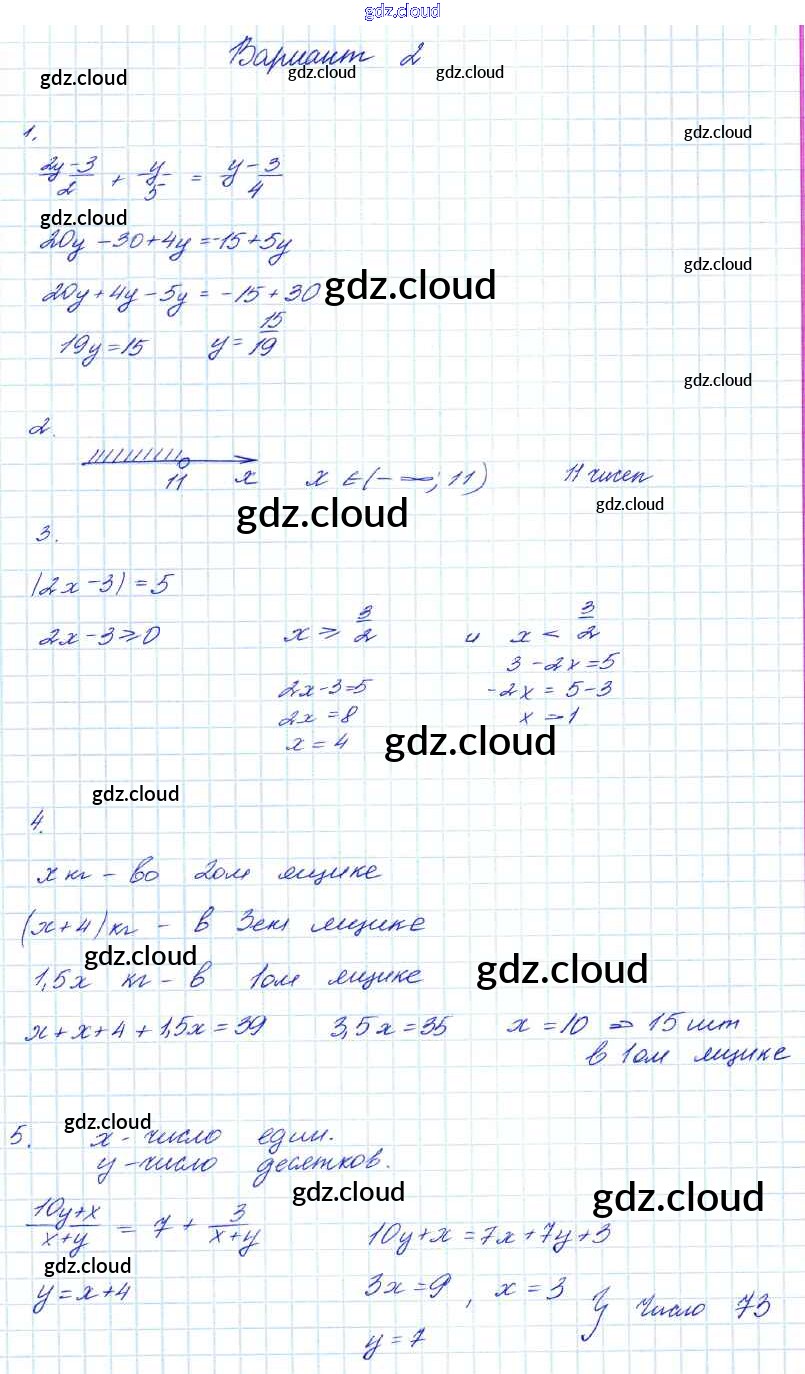 gdz.cloud
Вариант 2
gdz.cloud gdz.cloud gdz.cloud
gdz.cloud
1.
(2y-3)/2 + y/5 = (y-3)/4
gdz.cloud
20y - 30 + 4y = -15 + 5y
gdz.cloud
20y + 4y - 5y = -15 + 30
gdz.cloud
19y = 15 y = 15/19
gdz.cloud
2.
11 x x ∈ (-∞; 11) 11 чисел
gdz.cloud
gdz.cloud
3.
|2x - 3| = 5
2x - 3 ≥ 0 x ≥ 3/2 и x < 3/2
3 - 2x = 5
2x - 3 = 5 -2x = 5 - 3
2x = 8 x = -1
x = 4
gdz.cloud
gdz.cloud
4.
x кг - во 2ом ящике
(x+4) кг - в 3ем ящике
gdz.cloud
1,5x кг - в 1ом ящике
gdz.cloud
x + x + 4 + 1,5x = 39 3,5x = 35 x = 10 ⇒ 15 шт
в 1ом ящике
gdz.cloud
5. x - число един.
y - число десятков.
gdz.cloud
gdz.cloud
(10y+x)/(x+y) = 7 + 3/(x+y) 10y + x = 7x + 7y + 3
gdz.cloud
y = x + 4 3x = 9, x = 3 } Число 73
y = 7